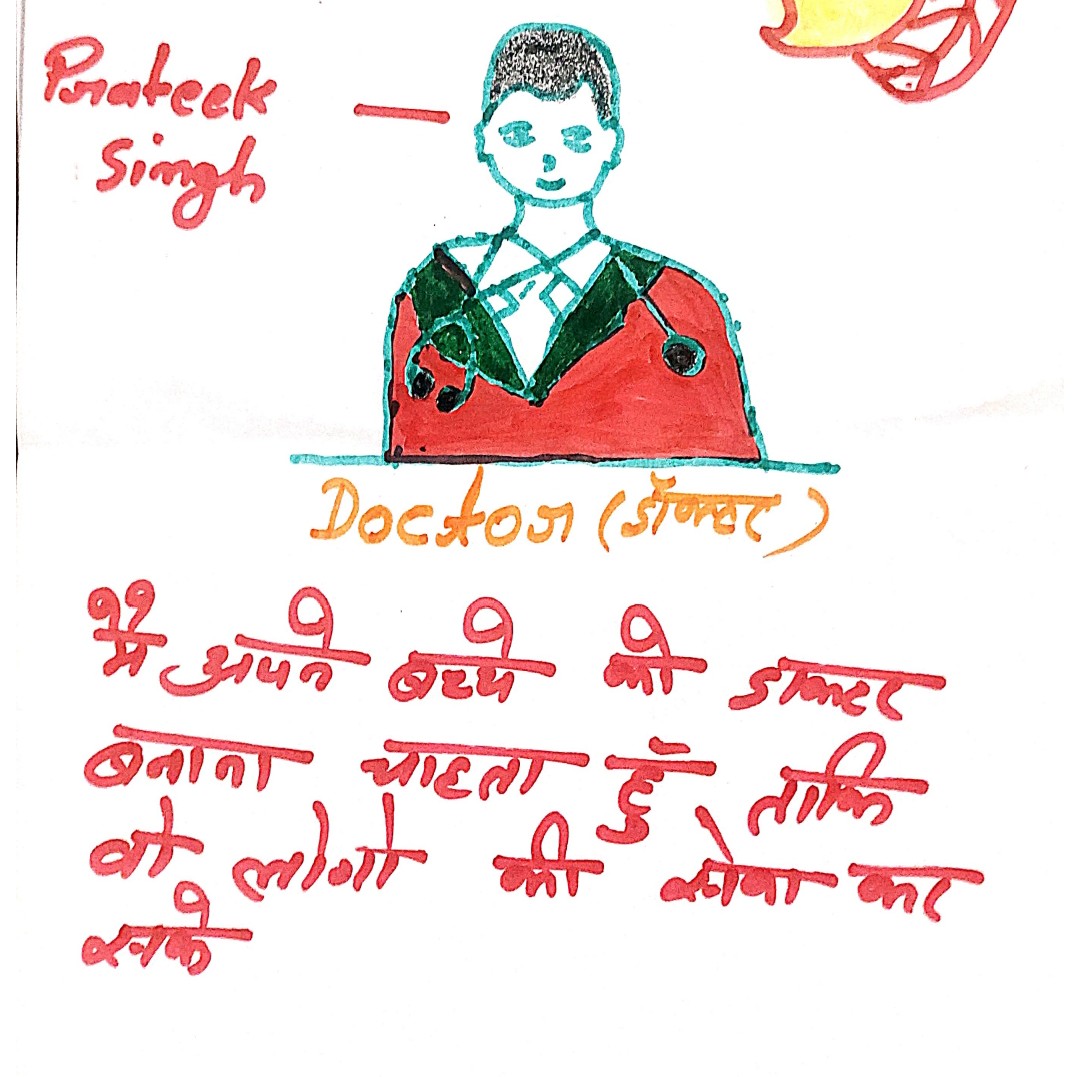 Prateek
Singh
Doctor (डॉक्टर)
मैं अपने बच्चे को डाक्टर
बनाना चाहता हूँ, ताकि
वो लोगो की सेवा कर
सके